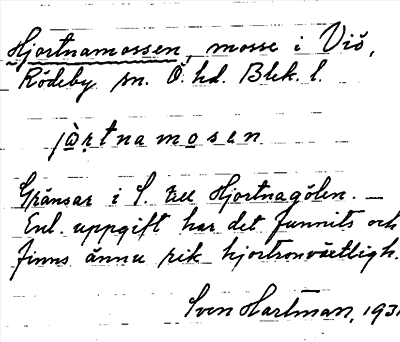 Hjortnamossen, mosse i Viö,
Rödeby sn. Ö. hd. Blek. l.
jo̊rtnamosen
Gränsar i S. till Hjortnagölen. –
Enl. uppgift har det funnits och
finns ännu rik hjortronväxtligh.
Sven Hartman, 193